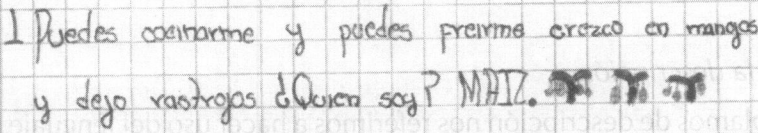 1 Puedes cocinarme y puedes freirme crezco en mangos
y dejo rastrojos ¿Quien soy? MAIZ.